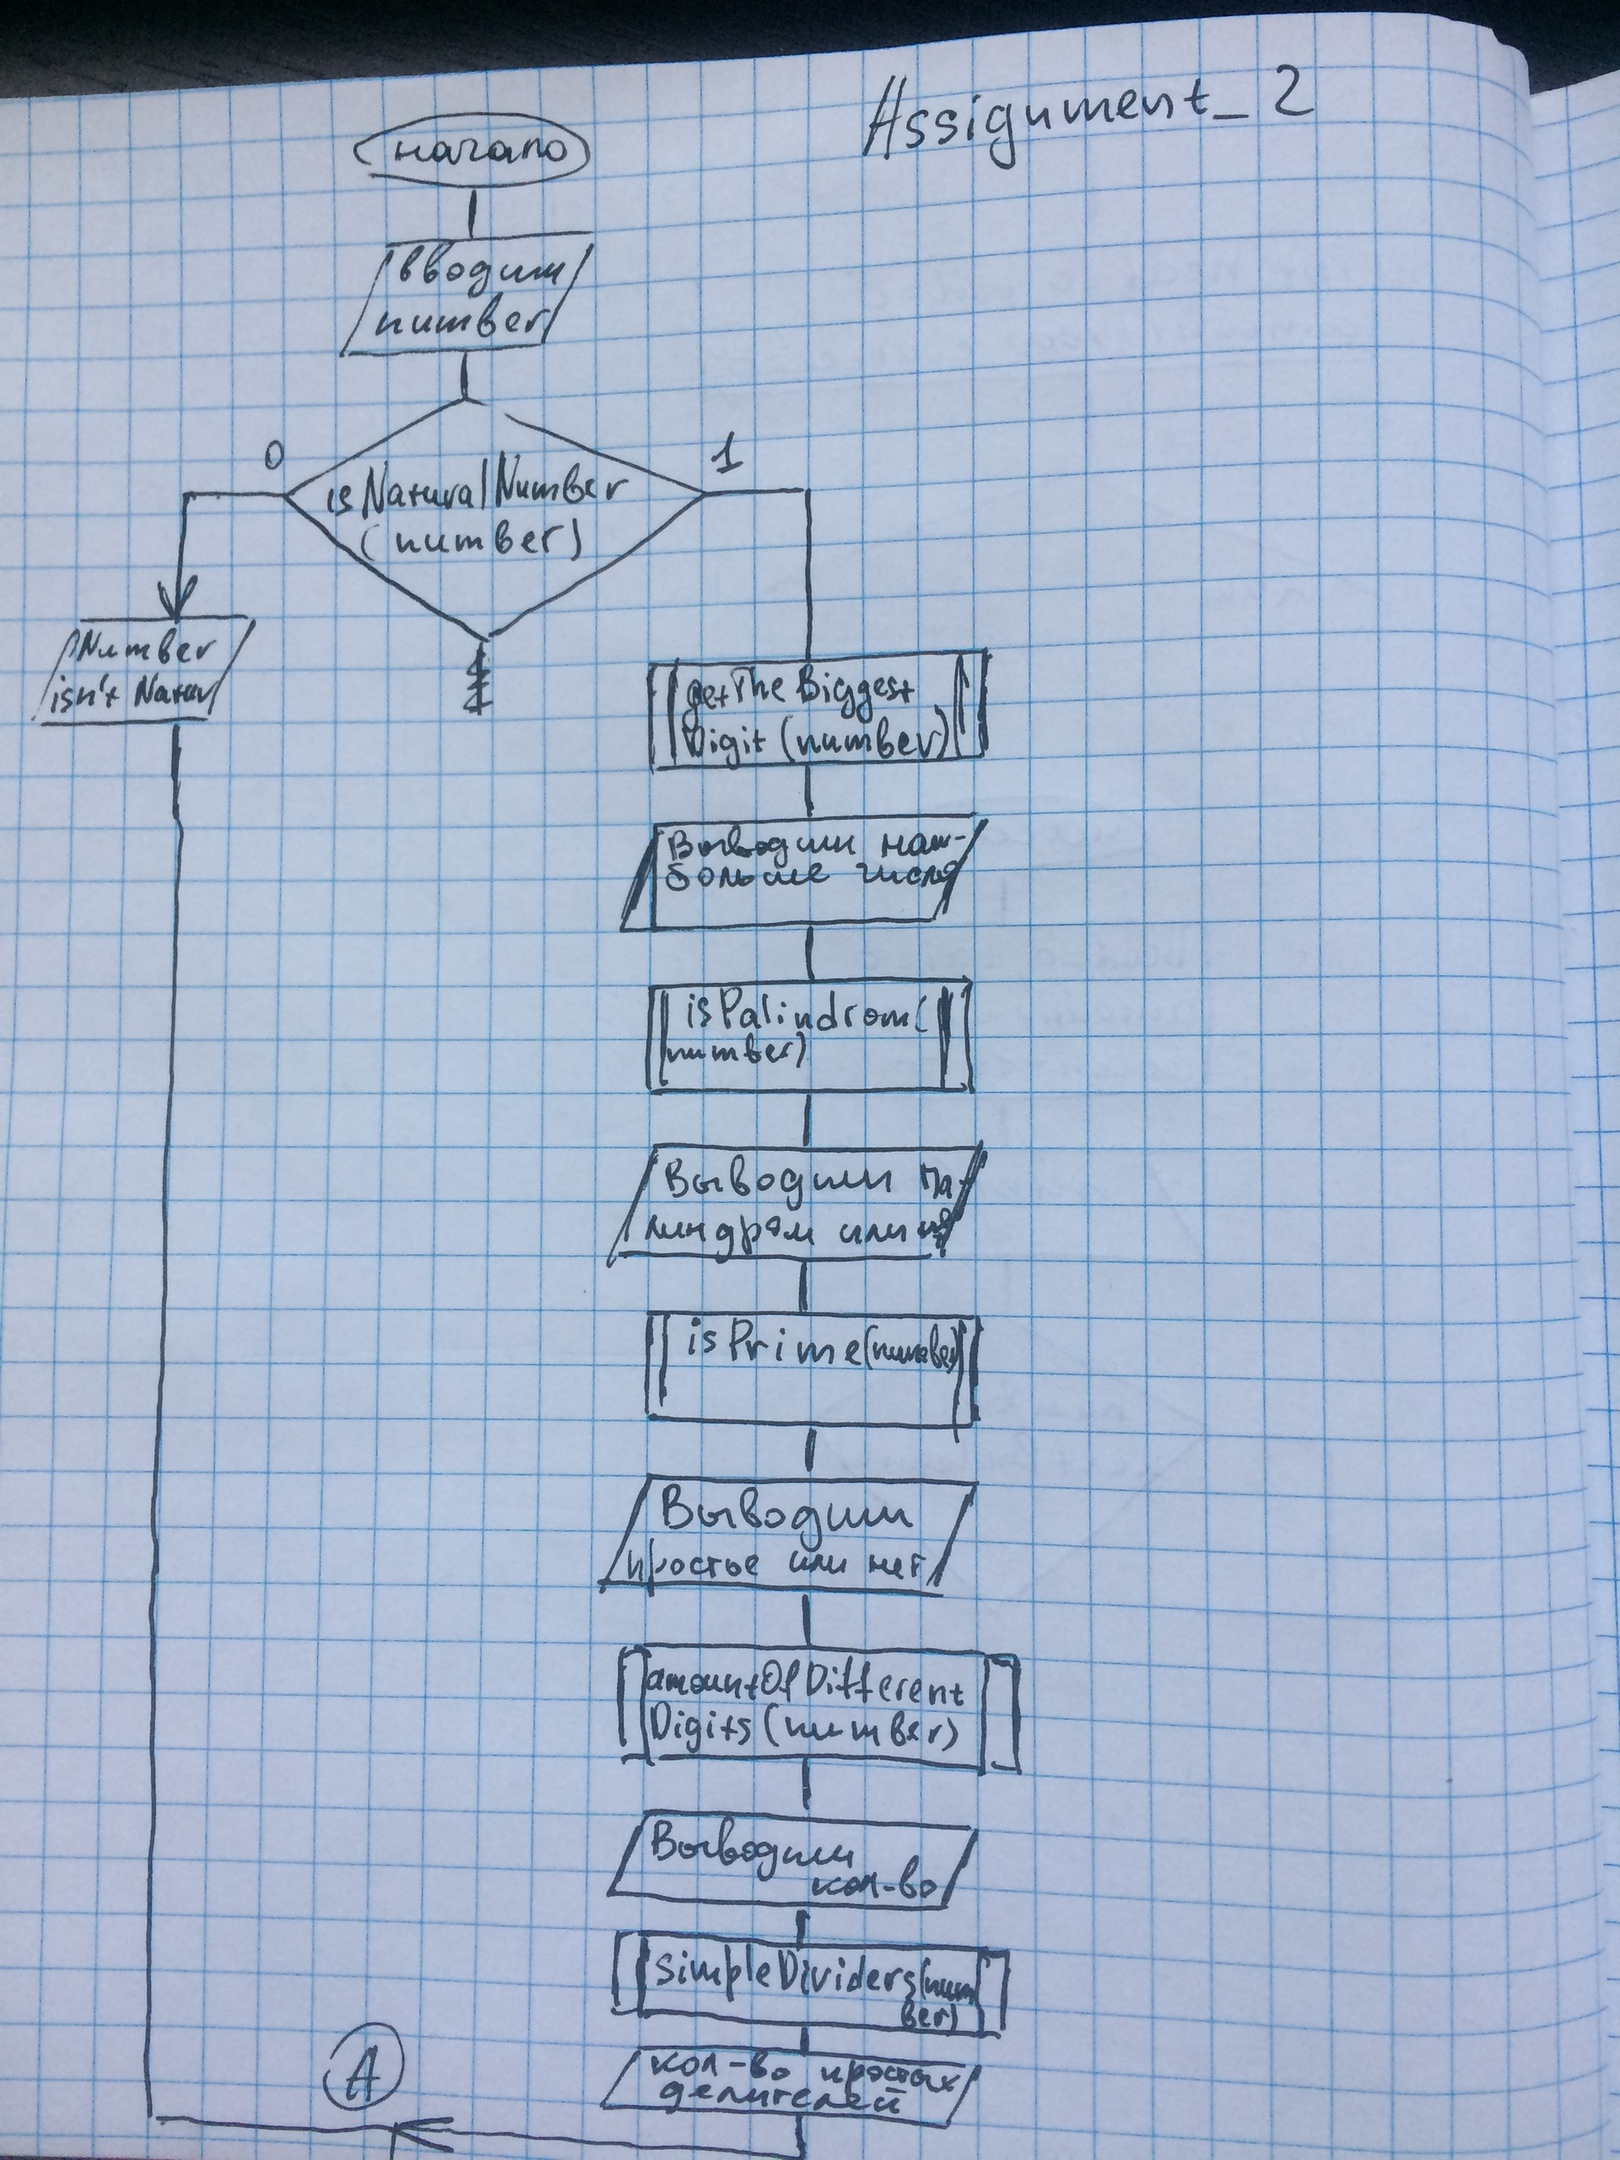 Assignment_2
начало
вводим
number
0
1
isNaturalNumber
(number)
Number
isn't Natur
getTheBiggest
Digit (number)
Выводим наи-
больше число
isPalindrom(
number)
Выводим па-
линдром или
isPrime(number)
Выводим
простое или нет
amountOfDifferent
Digits (number)
Выводим
кол-во
simpleDividers(num
ber)
кол-во простых
делителей
A